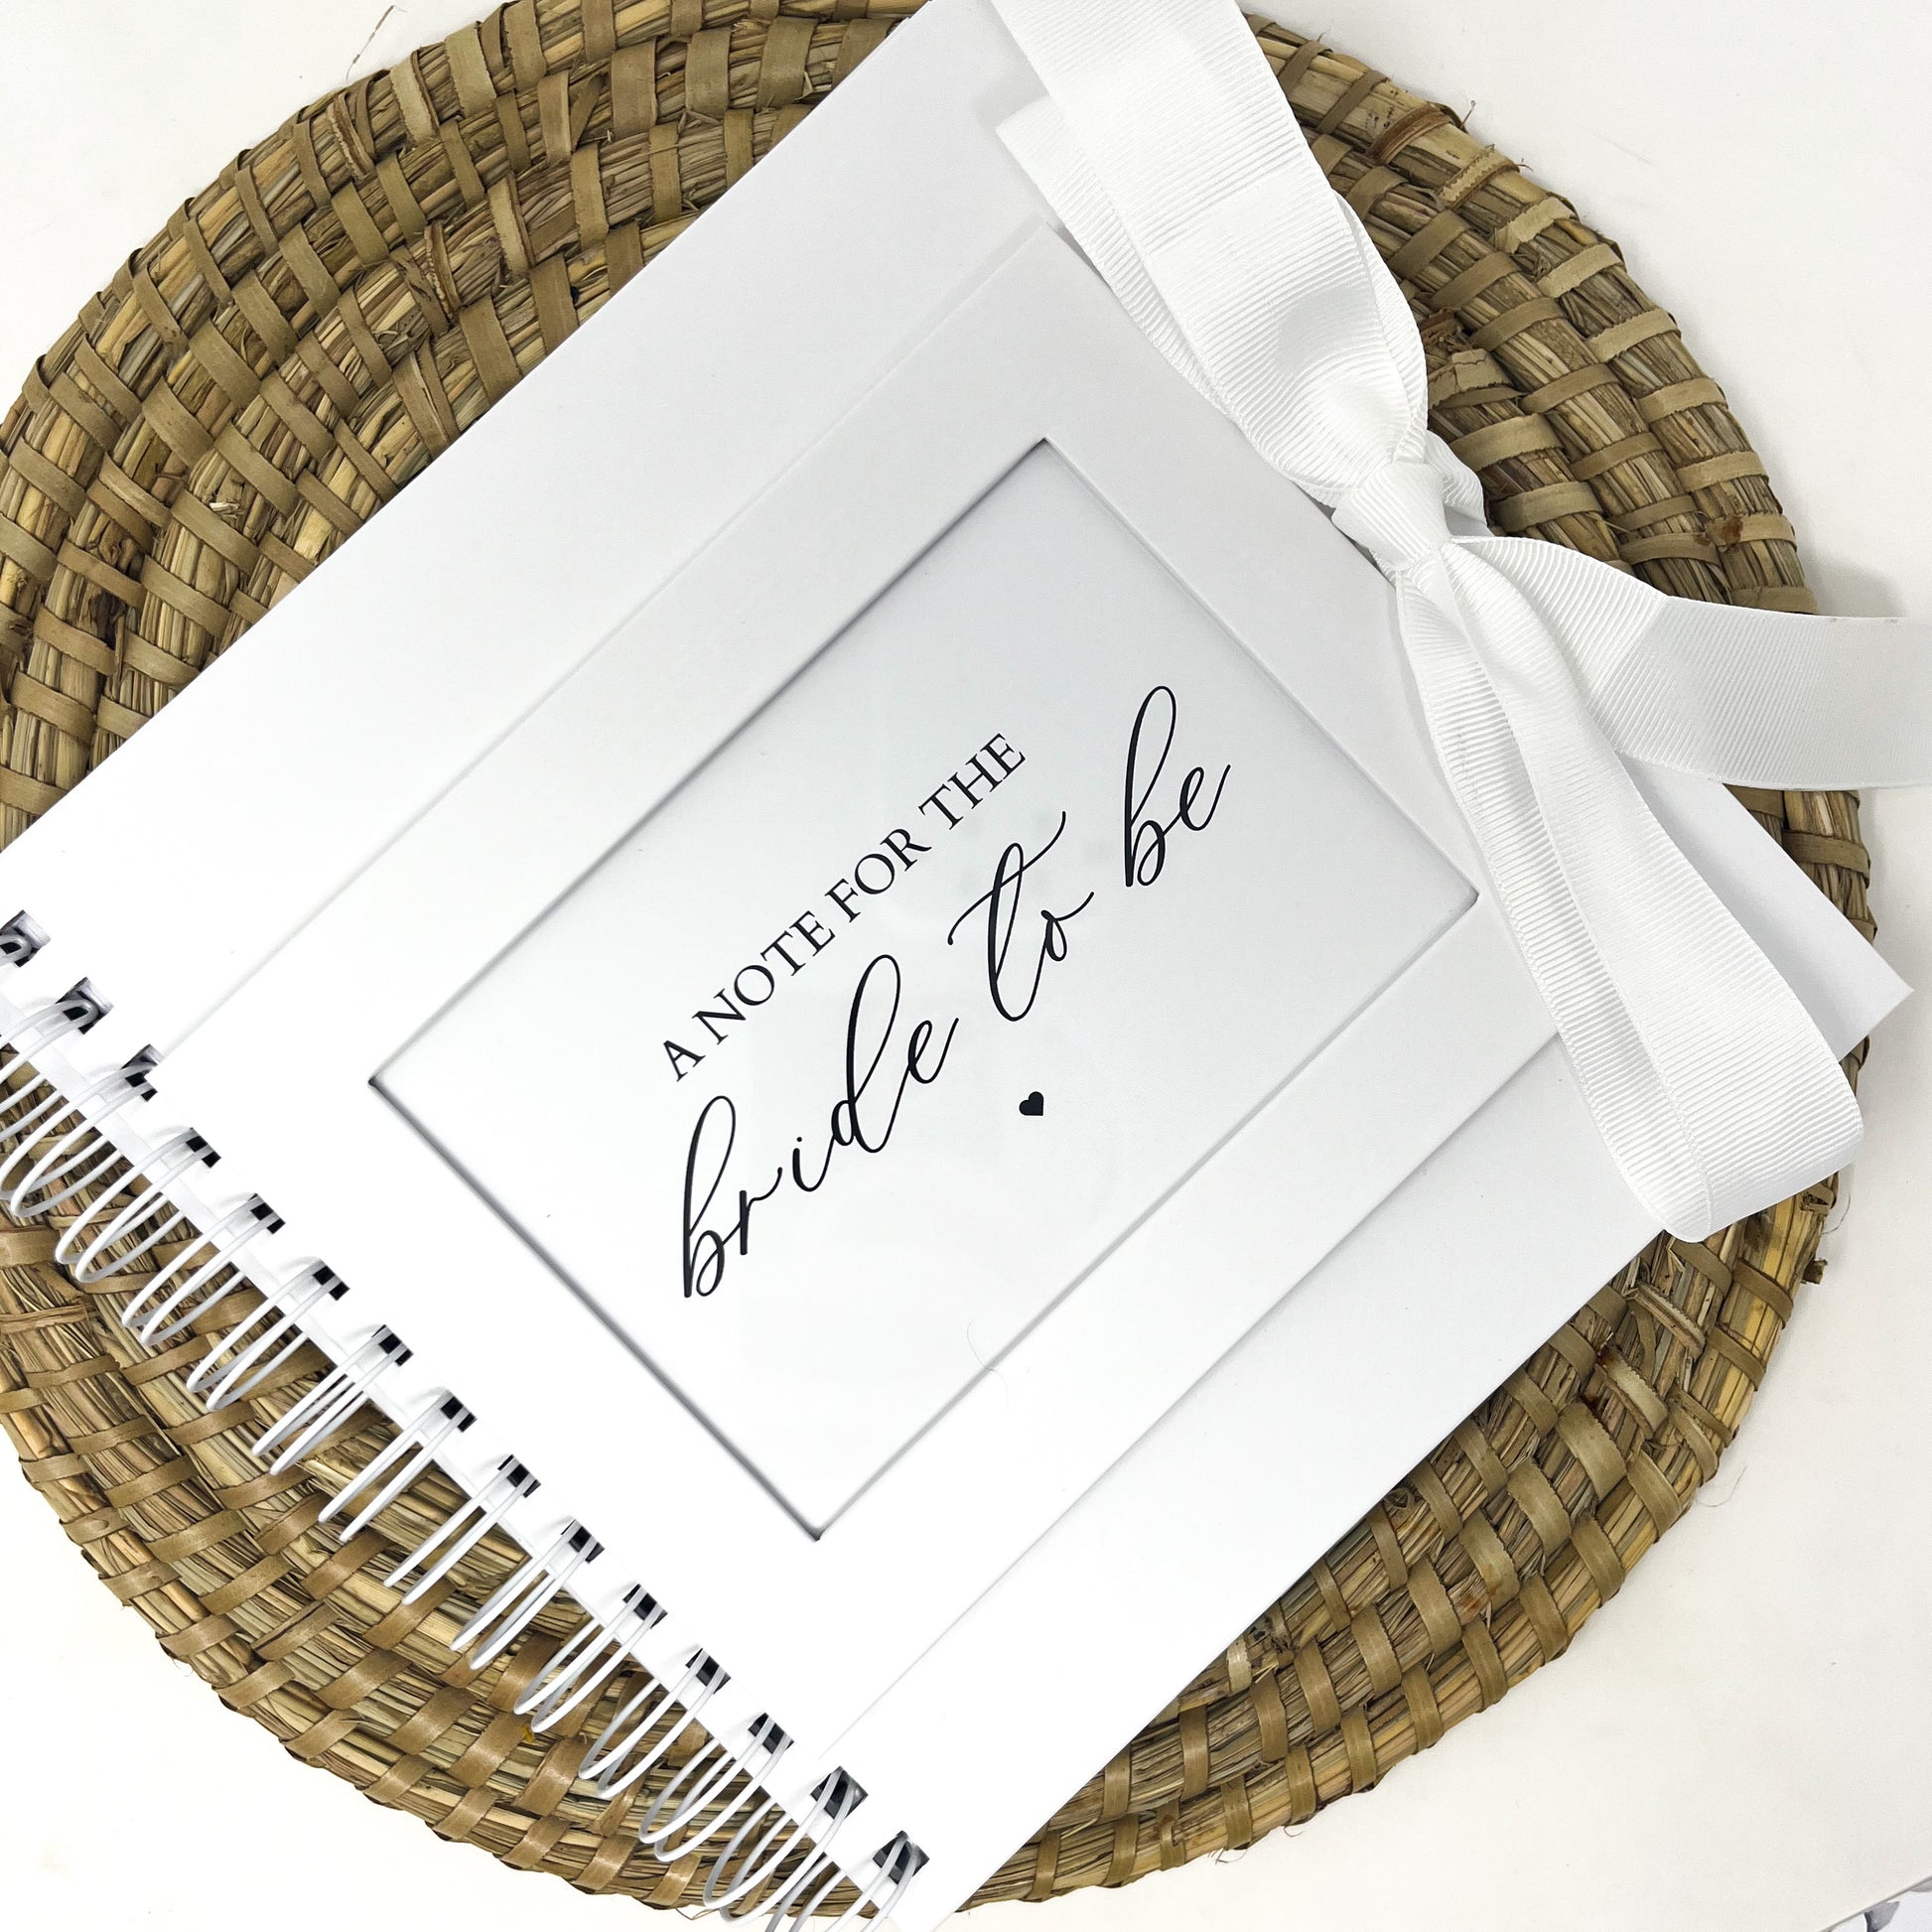 A NOTE FOR THE
bride to be